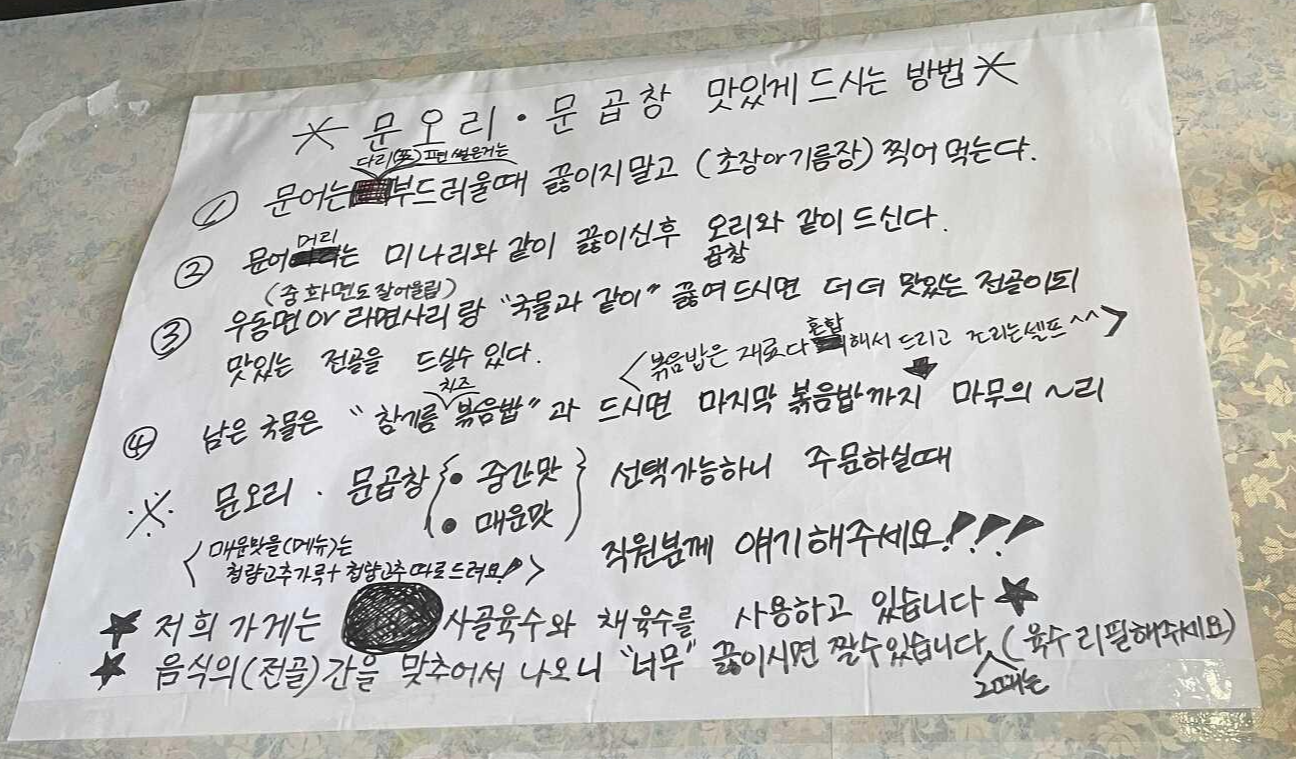 * 문오리 · 문곱창 맛있게 드시는 방법 *
다리(또) 편썰은거는
① 문어는 부드러울때 끓이지말고 (초장or기름장) 찍어 먹는다.
머리
② 문어는 미나리와 같이 끓이신후 오리와 같이 드신다.
곱창
(중화면도 잘어울림)
③ 우동면 or 라면사리랑 "국물과 같이" 끓여드시면 더더 맛있는 전골이되
맛있는 전골을 드실수 있다.
<볶음밥은 재료다 혼합해서 드리고 조리는셀프^^>
치즈
④ 남은 국물은 "참기름 볶음밥"과 드시면 마지막 볶음밥까지 마무의 ~리
※ 문오리 · 문곱창 { • 중간맛 • 매운맛 } 선택가능하니 주문하실때
직원분께 얘기해주세요!!!!
<매운맛을(메뉴)는
청량고추가루+청양고추따로드려요!>
★ 저희 가게는 사골육수와 채육수를 사용하고 있습니다 ★
★ 음식의(전골) 간을 맞추어서 나오니 "너무" 끓이시면 짤수있습니다 (육수리필해주세요)
그때는